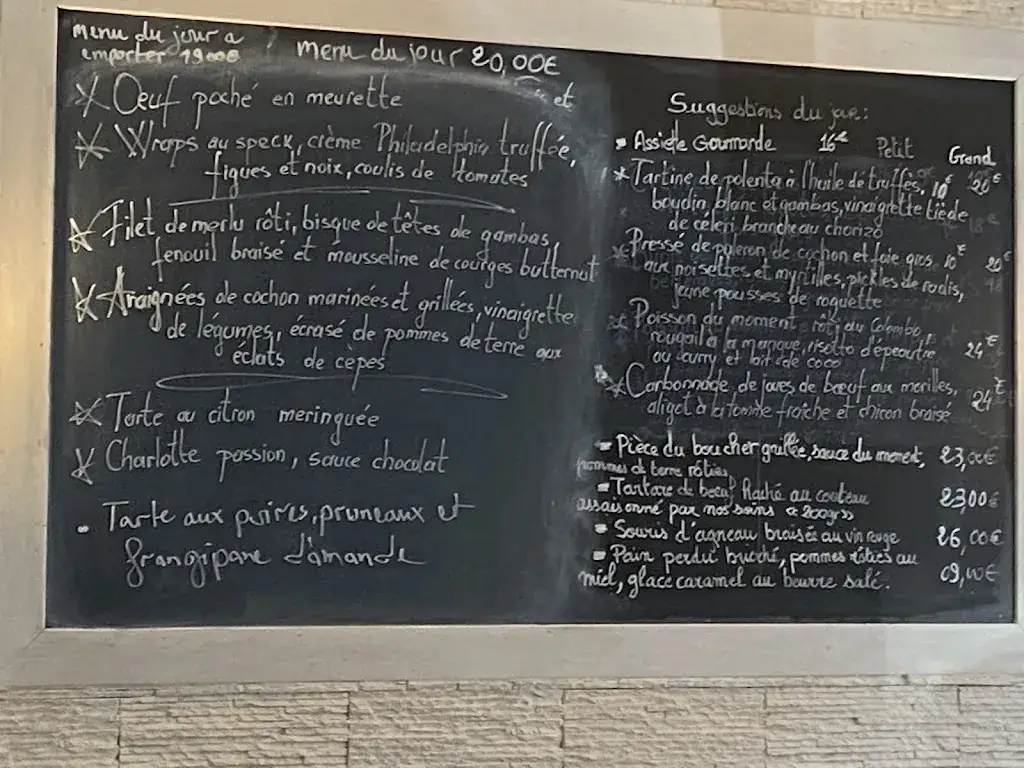 menu du jour a
emporter 19.00€
menu du jour 20,00€
* Oeuf poché en meurette
et
* Wraps au speck, crème Philadelphia truffée,
figues et noix, coulis de tomates
* Filet de merlu rôti, bisque de têtes de gambas,
fenouil braisé et mousseline de courges butternut
* Araignées de cochon marinées et grillées, vinaigrette
de légumes, écrasé de pommes de terre aux
éclats de cèpes
* Tarte au citron meringuée
* Charlotte passion, sauce chocolat
- Tarte aux poires, pruneaux et
frangipane d'amande
Suggestions du jour:
- Assiette Gourmande 16€ Petit Grand
* Tartine de polenta à l'huile de truffes, 10€ 20€
boudin blanc et gambas, vinaigrette tiède
de céleri branche au chorizo
* Pressé de paleron de cochon et foie gras 10€ 20€
aux noisettes et myrtilles, pickles de radis,
jeune pousses de roquette
* Poisson du moment rôti au Colombo,
rougail à la mangue, risotto d'épeautre 24€
au curry et lait de coco
* Carbonnade de joues de bœuf aux morilles, 24€
aligot à la tomme fraîche et chicon braisé
- Pièce du boucher grillée, sauce du moment, 23,00€
pommes de terre rôties
- Tartare de bœuf Haché au couteau 23,00€
assaisonné par nos soins < 200grs>
- Souris d'agneau braisée au vin rouge 26,00€
- Pain perdu brioché, pommes rôties au
miel, glace caramel au beurre salé. 09,00€